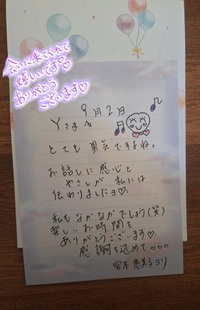 会いに来てくれて
嬉しいです♡
ありがとう
ございます♡
9月2日
Yさまへ
とても 真衣ですよね。
お話しに 感心と
やさしが 私には
伝わりましたョ♡
私もなかなかでしょう(笑)
楽しい お時間を
ありがとうございます♡
感謝を込めて
より